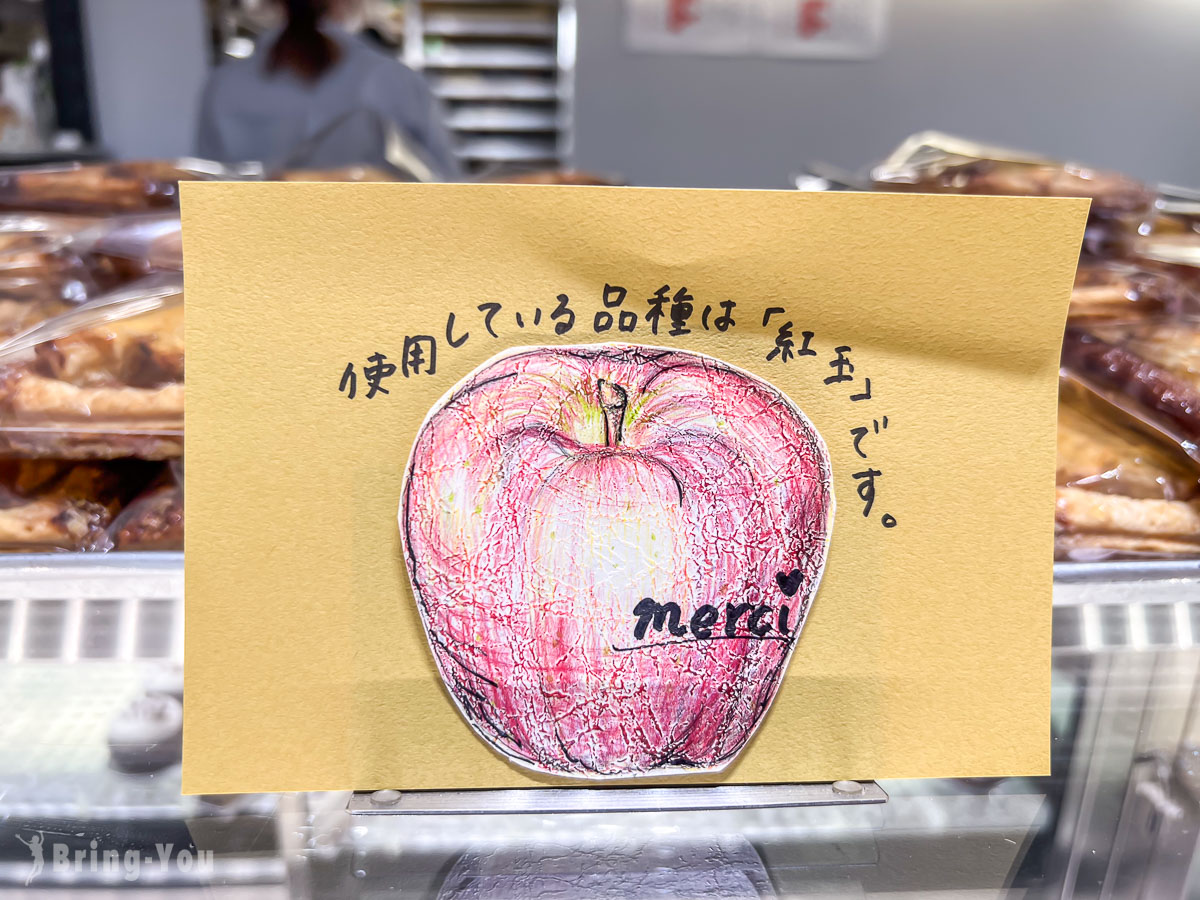 使用している品種は「紅玉」です。
merci
Bring-You